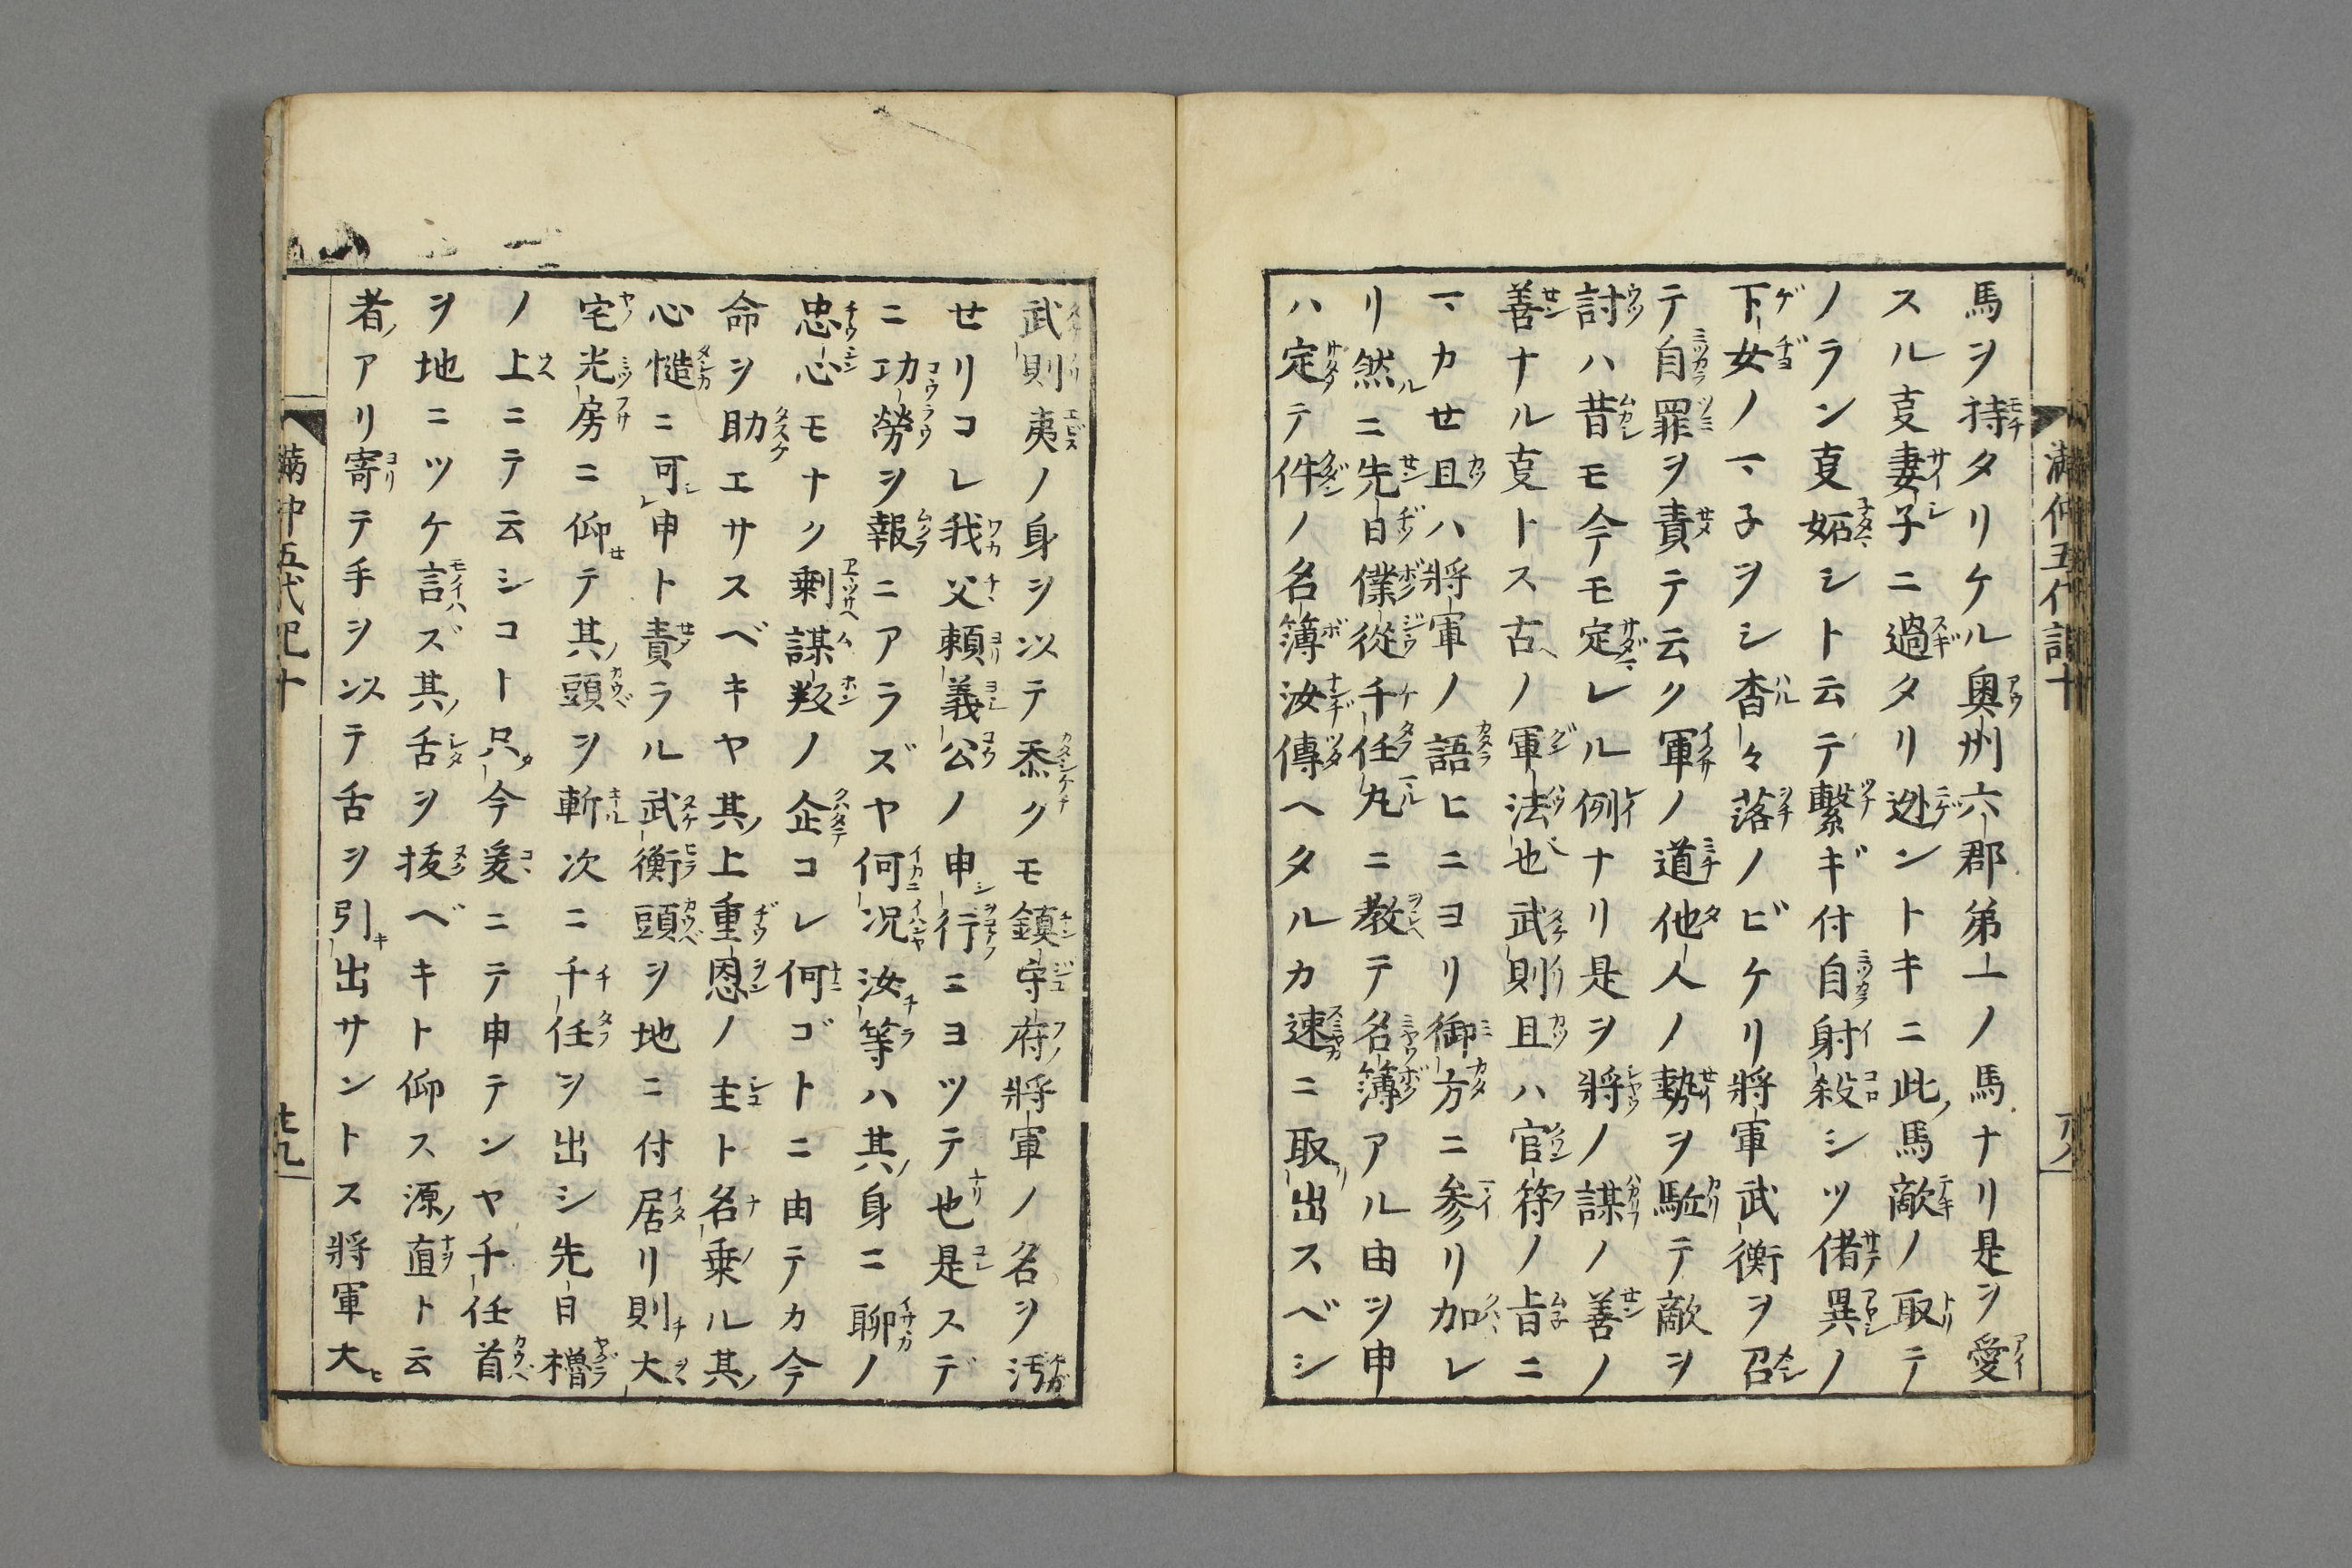 馬ヲ持タリケル奥州六郡第一ノ馬ナリ是ヲ愛
スル叓妻子ニ過タリ迯ントキニ此馬敵ノ取テ
ノラン叓妬シト云テ繋ギ付自射殺シツ偖異ノ
下女ノマ子ヲシ沓々落ノビケリ将軍武衡ヲ召
テ自罪ヲ責テ云ク軍ノ道他人ノ勢ヲ駈テ敵ヲ
討ハ昔モ今モ定レル例ナリ是ヲ将ノ謀ノ善ノ
善ナル叓トス古ノ軍法也武則且ハ官符ノ旨ニ
マカせ且ハ将軍ノ語ヒニヨリ御方ニ参リ加レ
リ然ニ先日僕従千任丸ニ教テ名簿アル由ヲ申
ハ定テ件ノ名簿汝傳ヘタルカ速ニ取出スベシ
武則夷ノ身ヲ以テ忝クモ鎮守府将軍ノ名ヲ汚
せリコレ我父頼義公ノ申行ニヨツテ也是スデ
ニ功勞ヲ報ニアラズヤ何况汝等ハ其身ニ聊ノ
忠心モナク剰謀叛ノ企コレ何ゴトニ由テカ今
命ヲ助エサスベキヤ其上重恩ノ主ト名乗ル其
心慥ニ可申ト責ラル武衡頭ヲ地ニ付居リ則大
宅光房ニ仰テ其頭ヲ斬次ニ千任ヲ出シ先日櫓
ノ上ニテ云シコト只今爰ニテ申テンヤ千任首
ヲ地ニツケ言ズ其舌ヲ抜ベキト仰ス源直ト云
者アリ寄テ手ヲ以テ舌ヲ引出サントス将軍大
満仲五代記十